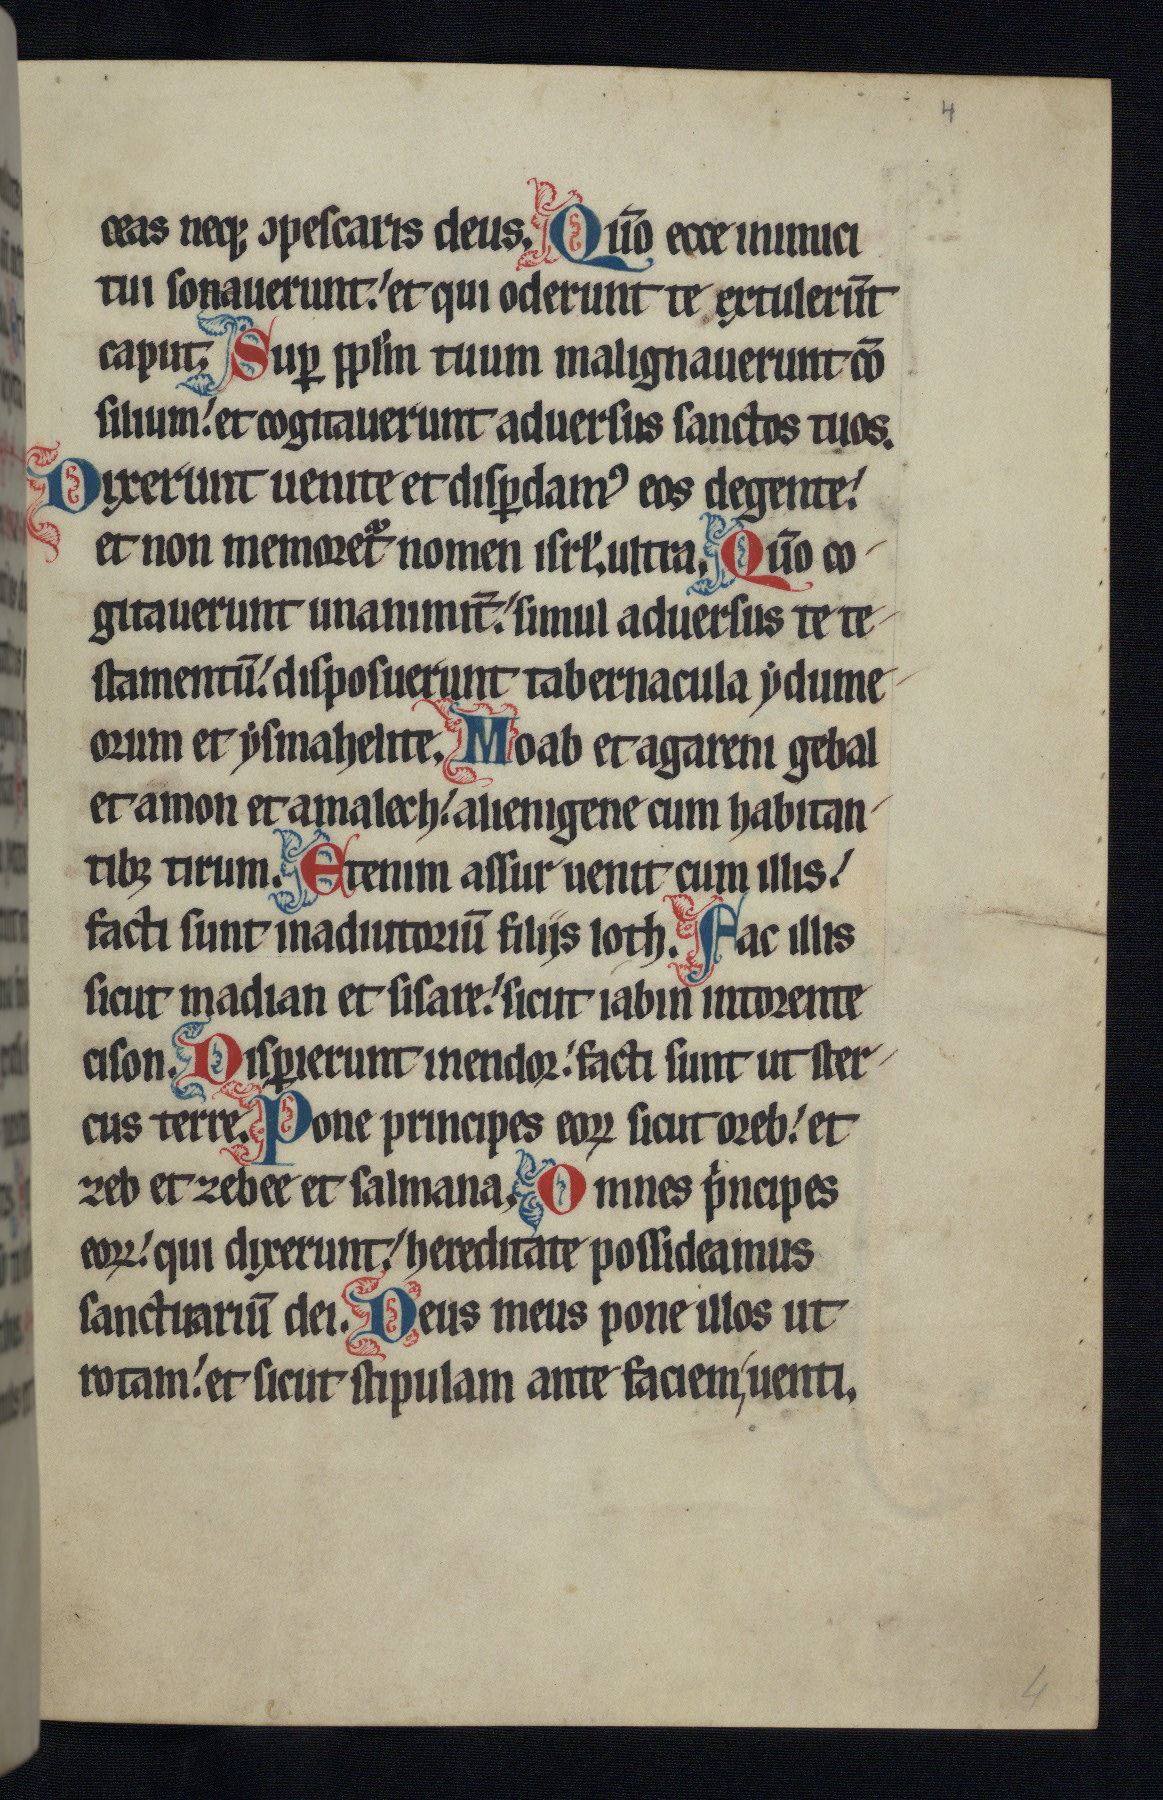 4
ceas neq; ɔpescaris deus. Qūo ecce inimici
tui sonauerunt: et qui oderunt te extulerūt
caput. Suꝑ ppl̄m tuum malignauerunt cō
silium: et cogitauerunt aduersus sanctos tuos.
Dixerunt uenite et disꝑdamꝰ eos degente:
et non memoret᷑ nomen isrl̄ ultra. Qūo co-
gitauerunt unanimit̄: simul aduersus te te-
stamentū: disposuerunt tabernacula ẏdume-
orum et ẏsmahelite. Moab et agareni gebal
et amon et amalech: alienigene cum habitan-
tibꝫ tirum. Etenim assur uenit cum illis:
facti sunt inadiutoriū filijs loth. Fac illis
sicut madian et sisare: sicut iabin intorente
cison. Disꝑierunt inendor: facti sunt ut ster-
cus terre. Pone principes eoꝝ sicut oreb: et
zeb et zebee et salmana. Omnes pͥncipes
eoꝝ: qui dixerunt: hereditate possideamus
sanctuariū dei. Deus meus pone illos ut
rotam: et sicut stipulam ante faciem uenti.
4